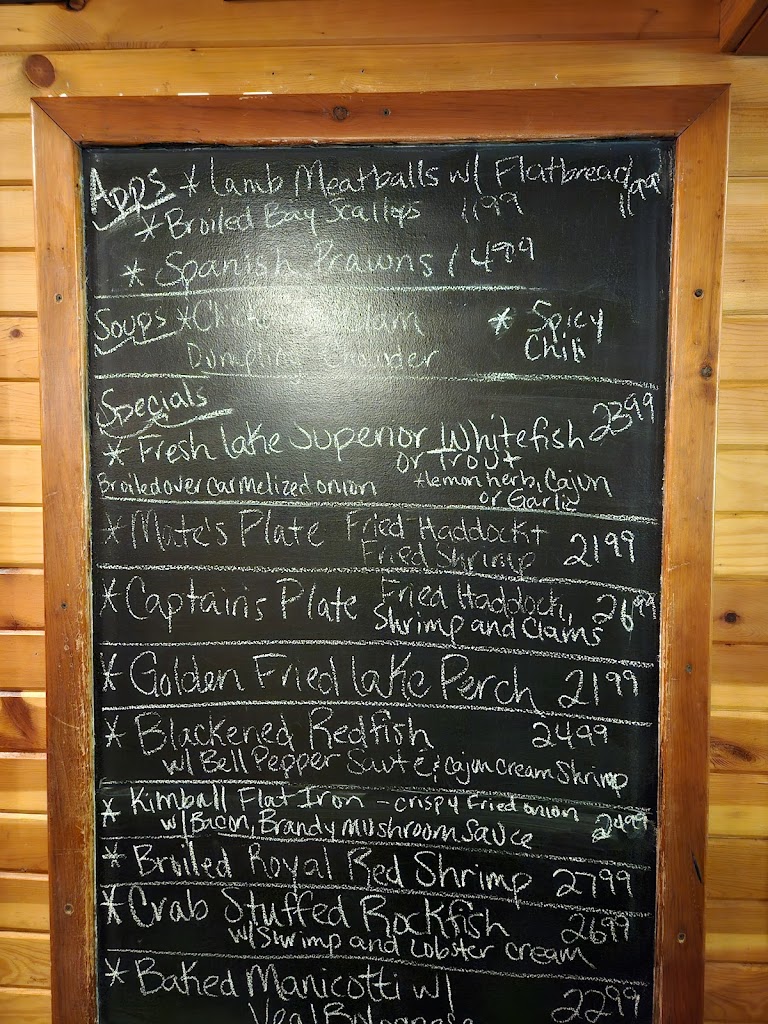 Apps * Lamb Meatballs w/ Flatbread 1199
* Broiled Bay Scallops 1199
* Spanish Prawns 1499
Soups * Clam * Spicy
Dumpling Chowder Chili
Specials
* Fresh Lake Superior Whitefish 2399
or Trout
Broiled over carmelized onion *lemon herb, Cajun
or Garlic
* Mate's Plate Fried Haddock +
Fried Shrimp 2199
* Captain's Plate Fried Haddock, 2699
Shrimp and Clams
* Golden Fried Lake Perch 2199
* Blackened Redfish 2499
w/ Bell Pepper Sauté & Cajun Cream Shrimp
* Kimball Flat Iron - crispy fried onion
w/ Bacon, Brandy mushroom Sauce 2499
* Broiled Royal Red Shrimp 2799
* Crab Stuffed Rockfish 2699
w/ Shrimp and Lobster cream
* Baked Manicotti w/ 2299
Veal Bolognese